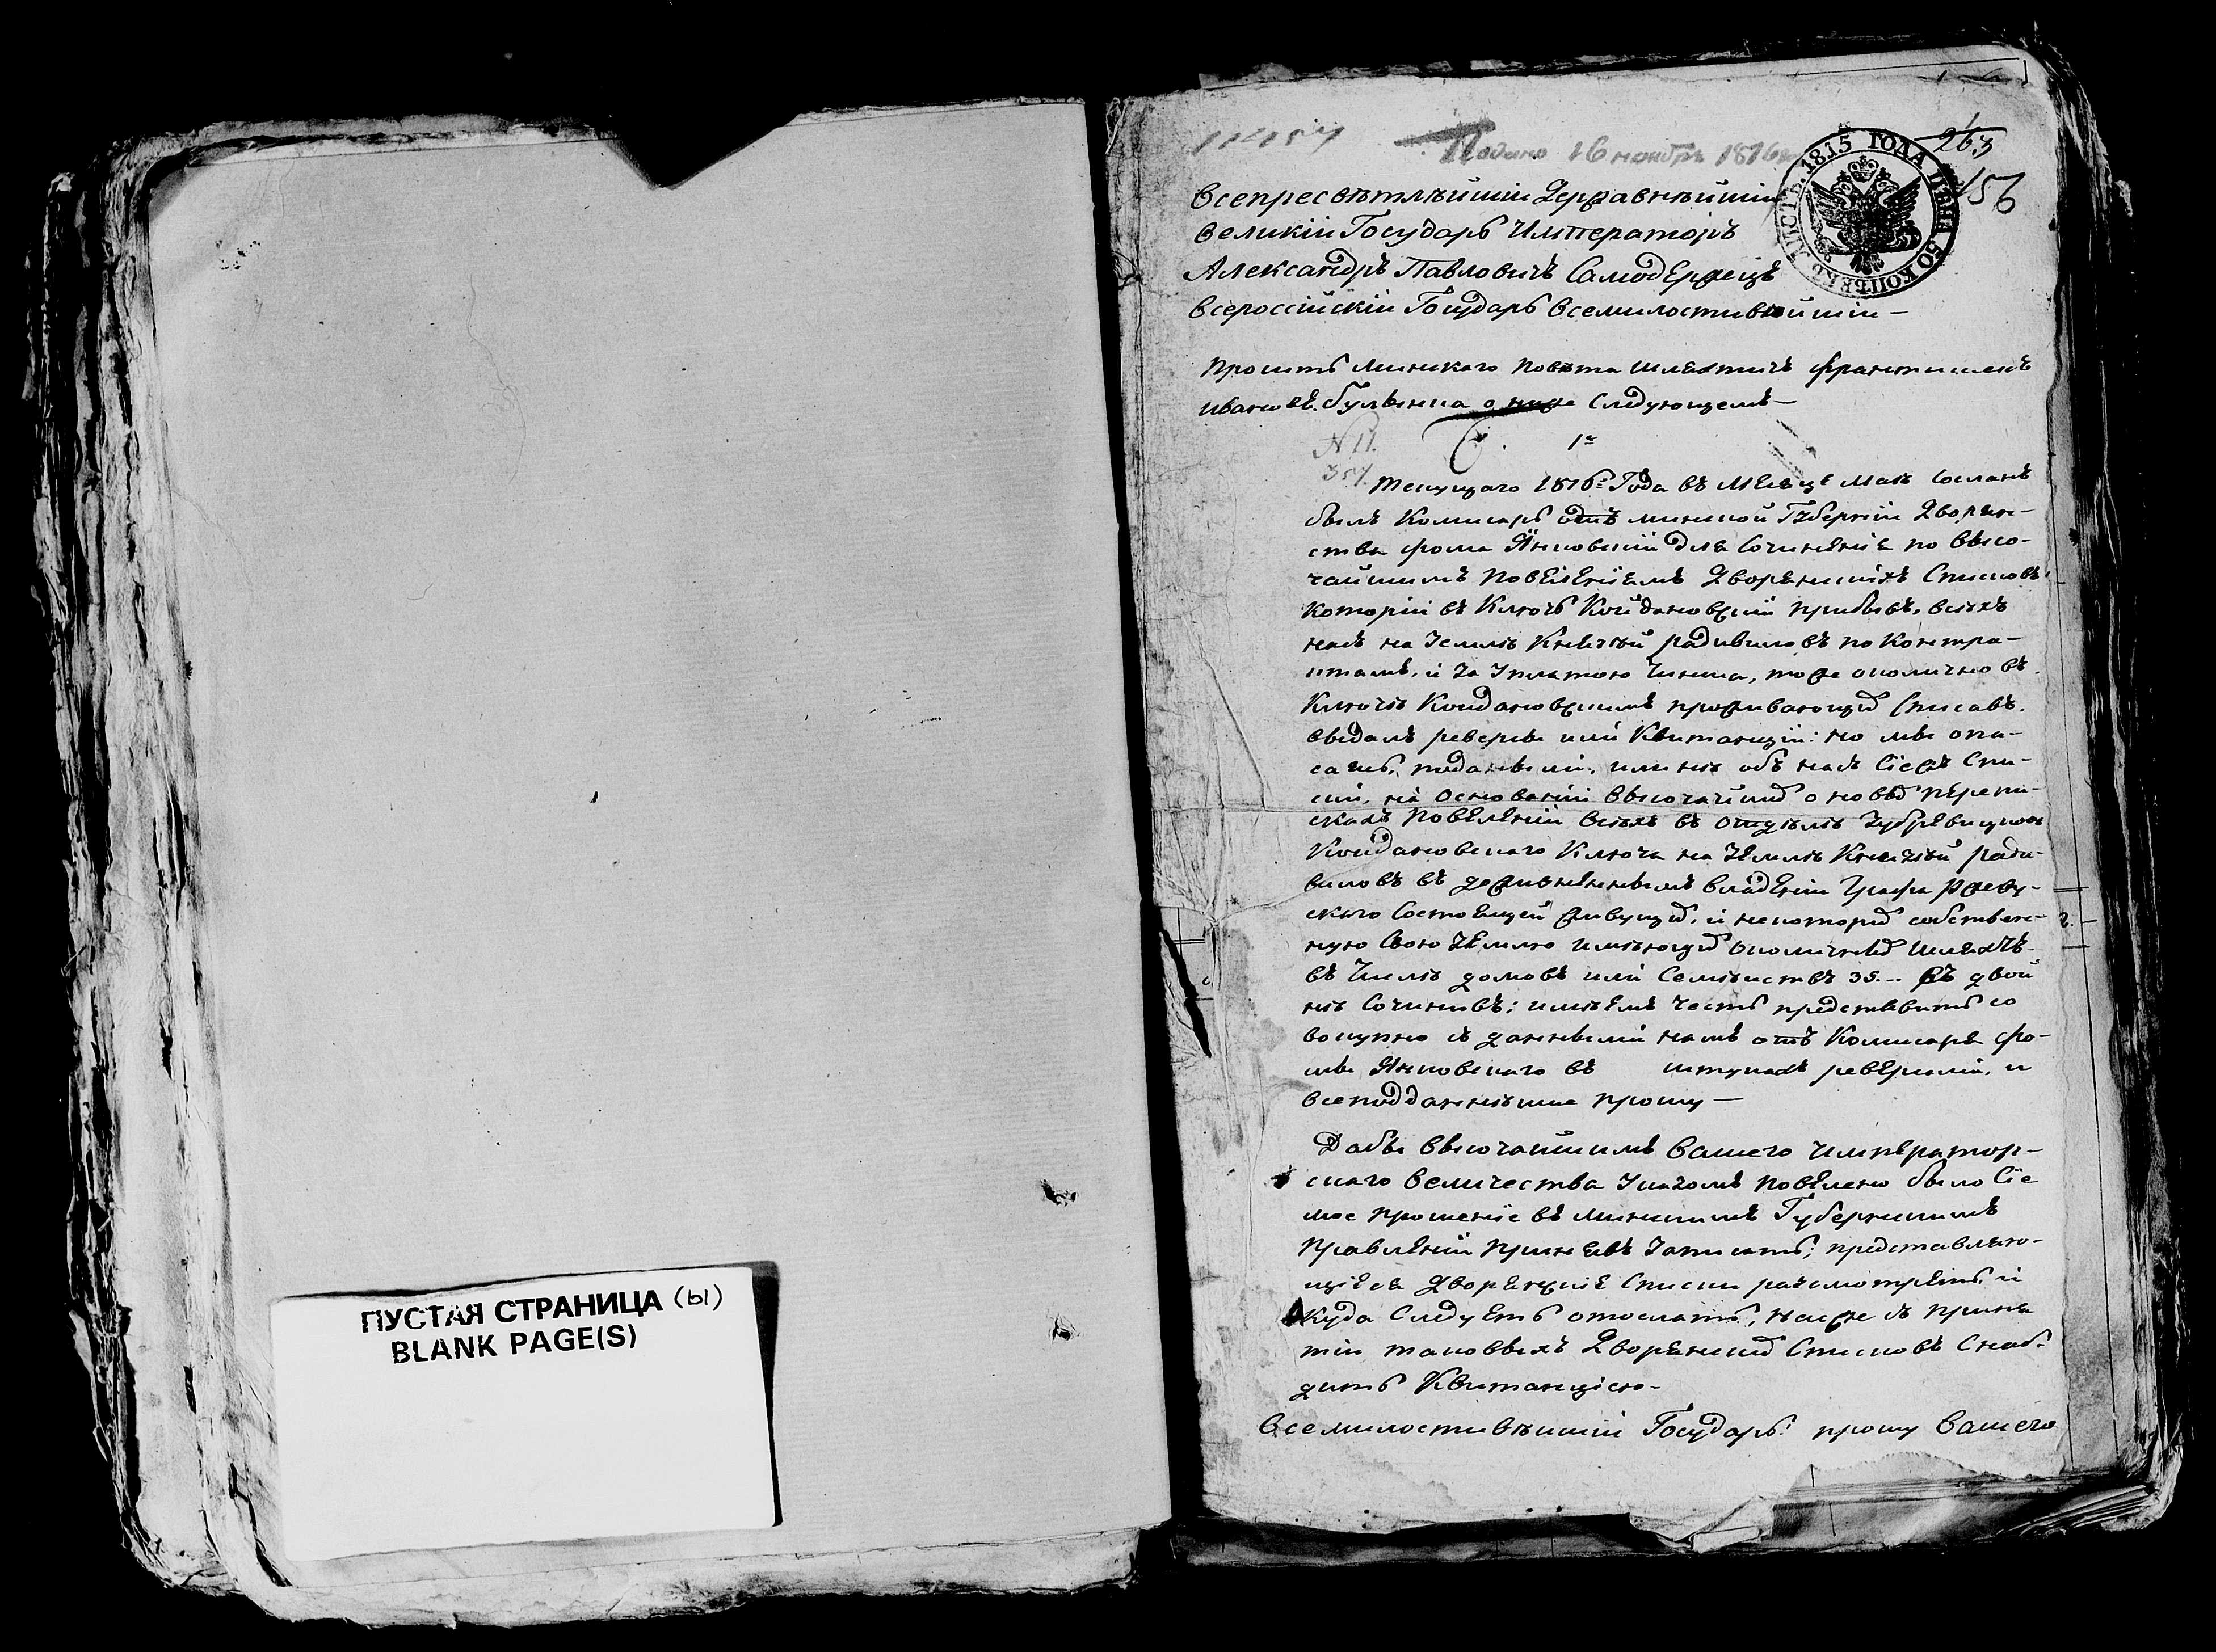 ПУСТАЯ СТРАНИЦА (ы)
BLANK PAGE(S)
Подано 16 ноября 1816
263
156
ЛИСТЪ. 1815 ГОДА ЦѢНА 50 КОПѢЕКЪ
Всепресвѣтлѣйшіи Державнѣйшіи
Великіи Государь Императоръ
Александръ Павловичъ Самодержецъ
Всероссійскіи Государь Всемилостивѣйшіи —
Проситъ Минскаго Повѣта Шляхтичъ Францишекъ
Ивановъ о ниже Следующемъ —
N 11.
357.
1е
Текущаго 1816: Года въ Месяце Маѣ Сосланъ
былъ Комисаръ отъ минской Губерніи Дворян-
ства Фома Янковскій для Сочиненія по Высо-
чайшимъ Повеленіемъ Дворянскихъ Списковъ,
Которіи въ Ключъ Койдановскіи прибывъ, всѣхъ
насъ на Землѣ Князѣй Радивиловъ по Контра-
ктамъ, и за Уплатою Чинша, тоже околично въ
Ключѣ Койдановскимъ проживающихъ Списавъ.
выдалъ реверсы или Квитанціи: но мы опа-
саясь, поданы ли, или нѣ объ насъ Сіежъ Спи-
ски, на Основаніи Высочайшихъ о новыхъ перепи-
скахъ Повеленіи всѣхъ въ
Койдановскаго Ключа на Землѣ Князѣй Ради-
виловъ въ владеніи Графа Ржеву-
скаго Состоящей живущихъ, и некоторихъ собствен-
ную Свою Землю имѣющихъ Околичныхъ Шляхтъ
въ Числѣ домовъ или Семѣиствъ 35... въ двой
нѣ Сочинивъ; имѣемъ Честь представить со
вокупно съ данными намъ отъ Комисара Фо-
мы Янковскаго въ штукахъ реверсами, и
всеподданнѣише прошу —
Дабы Высочайшимъ Вашего Император-
скаго Величества Указомъ повелено было Сіе
мое прошеніе въ Минскимъ Губернскимъ
Правленіи принявъ Записать; представляю-
щіеся Дворянскіе Списки разсмотреть и
Куда Следуетъ отослать, насже въ приня
тіи таковыхъ Дворянскихъ Списковъ Снаб-
дить Квитанціею —
Всемилостивѣишіи Государь! прошу Вашего